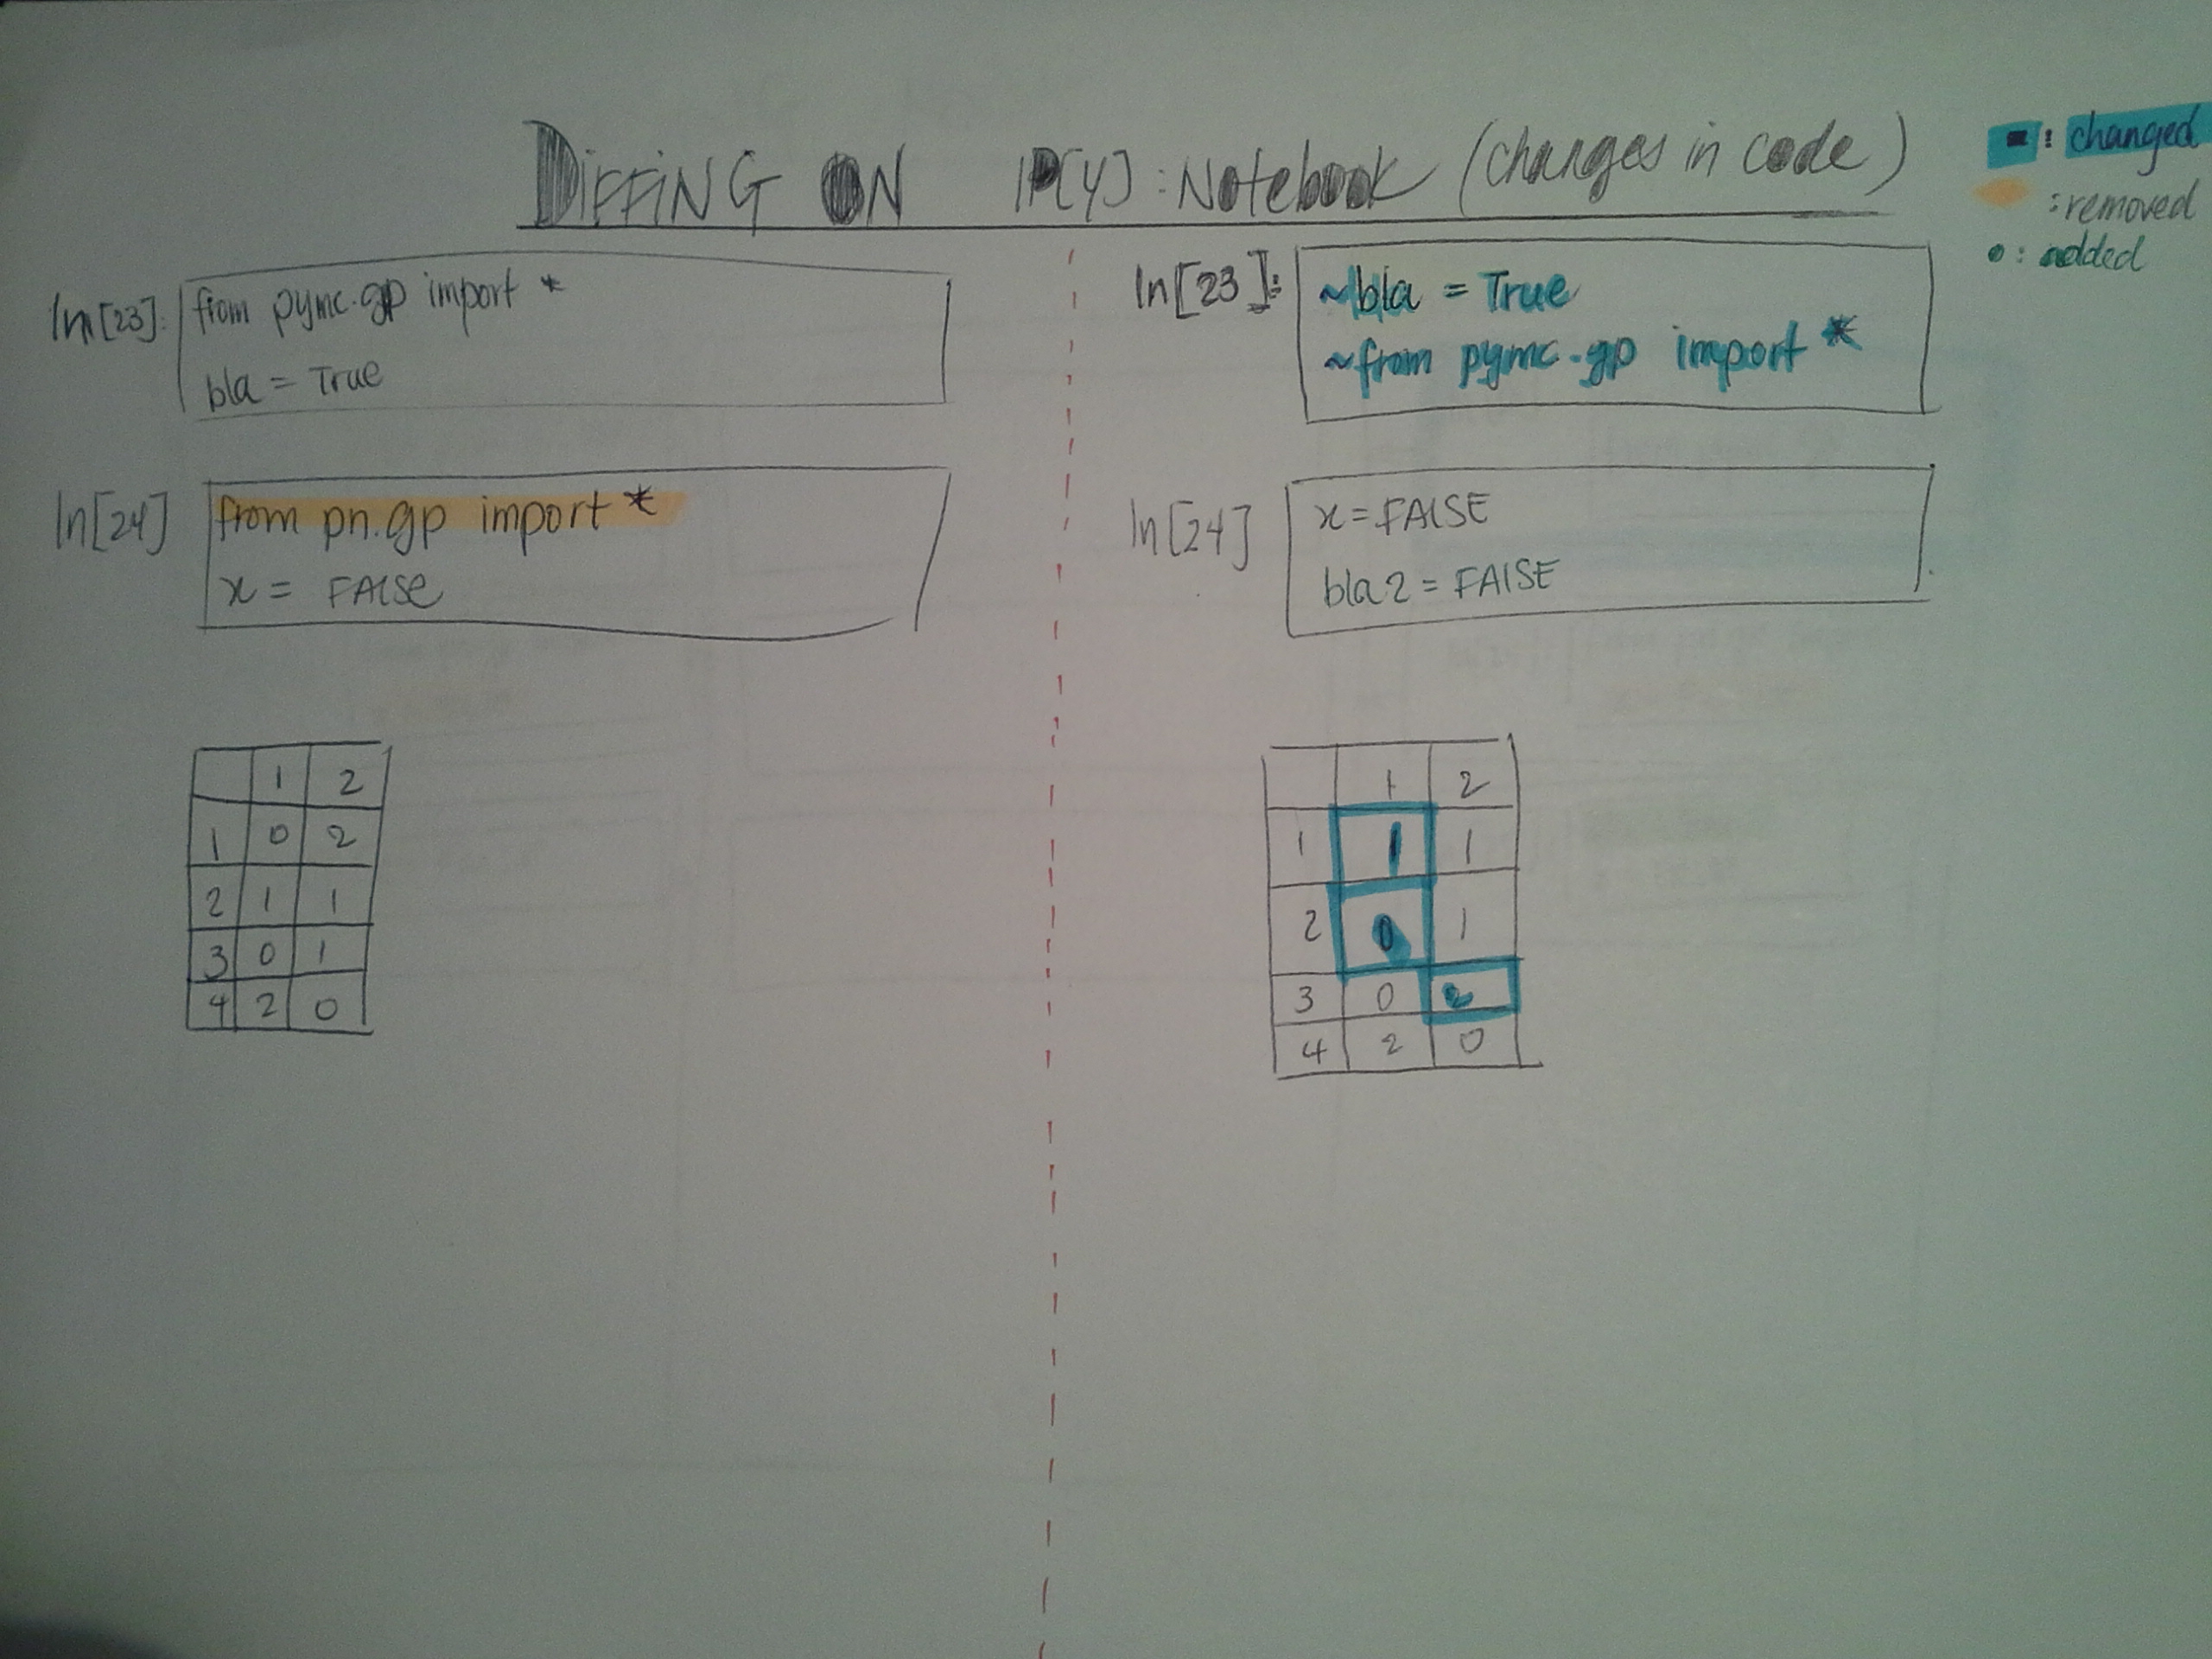 DIFFING ON IP[Y]: Notebook (changes in code)
: changed
: removed
: added
In[23]:
from pymc.gp import *
bla = True
In[24]
from pn.gp import *
x = FAlSe
1 2
1 0 2
2 1 1
3 0 1
4 2 0
In[23]:
~bla = True
~from pymc.gp import *
In[24]
x = FAlSE
bla2 = FAlSE
1 2
1 1 1
2 0 1
3 0 2
4 2 0